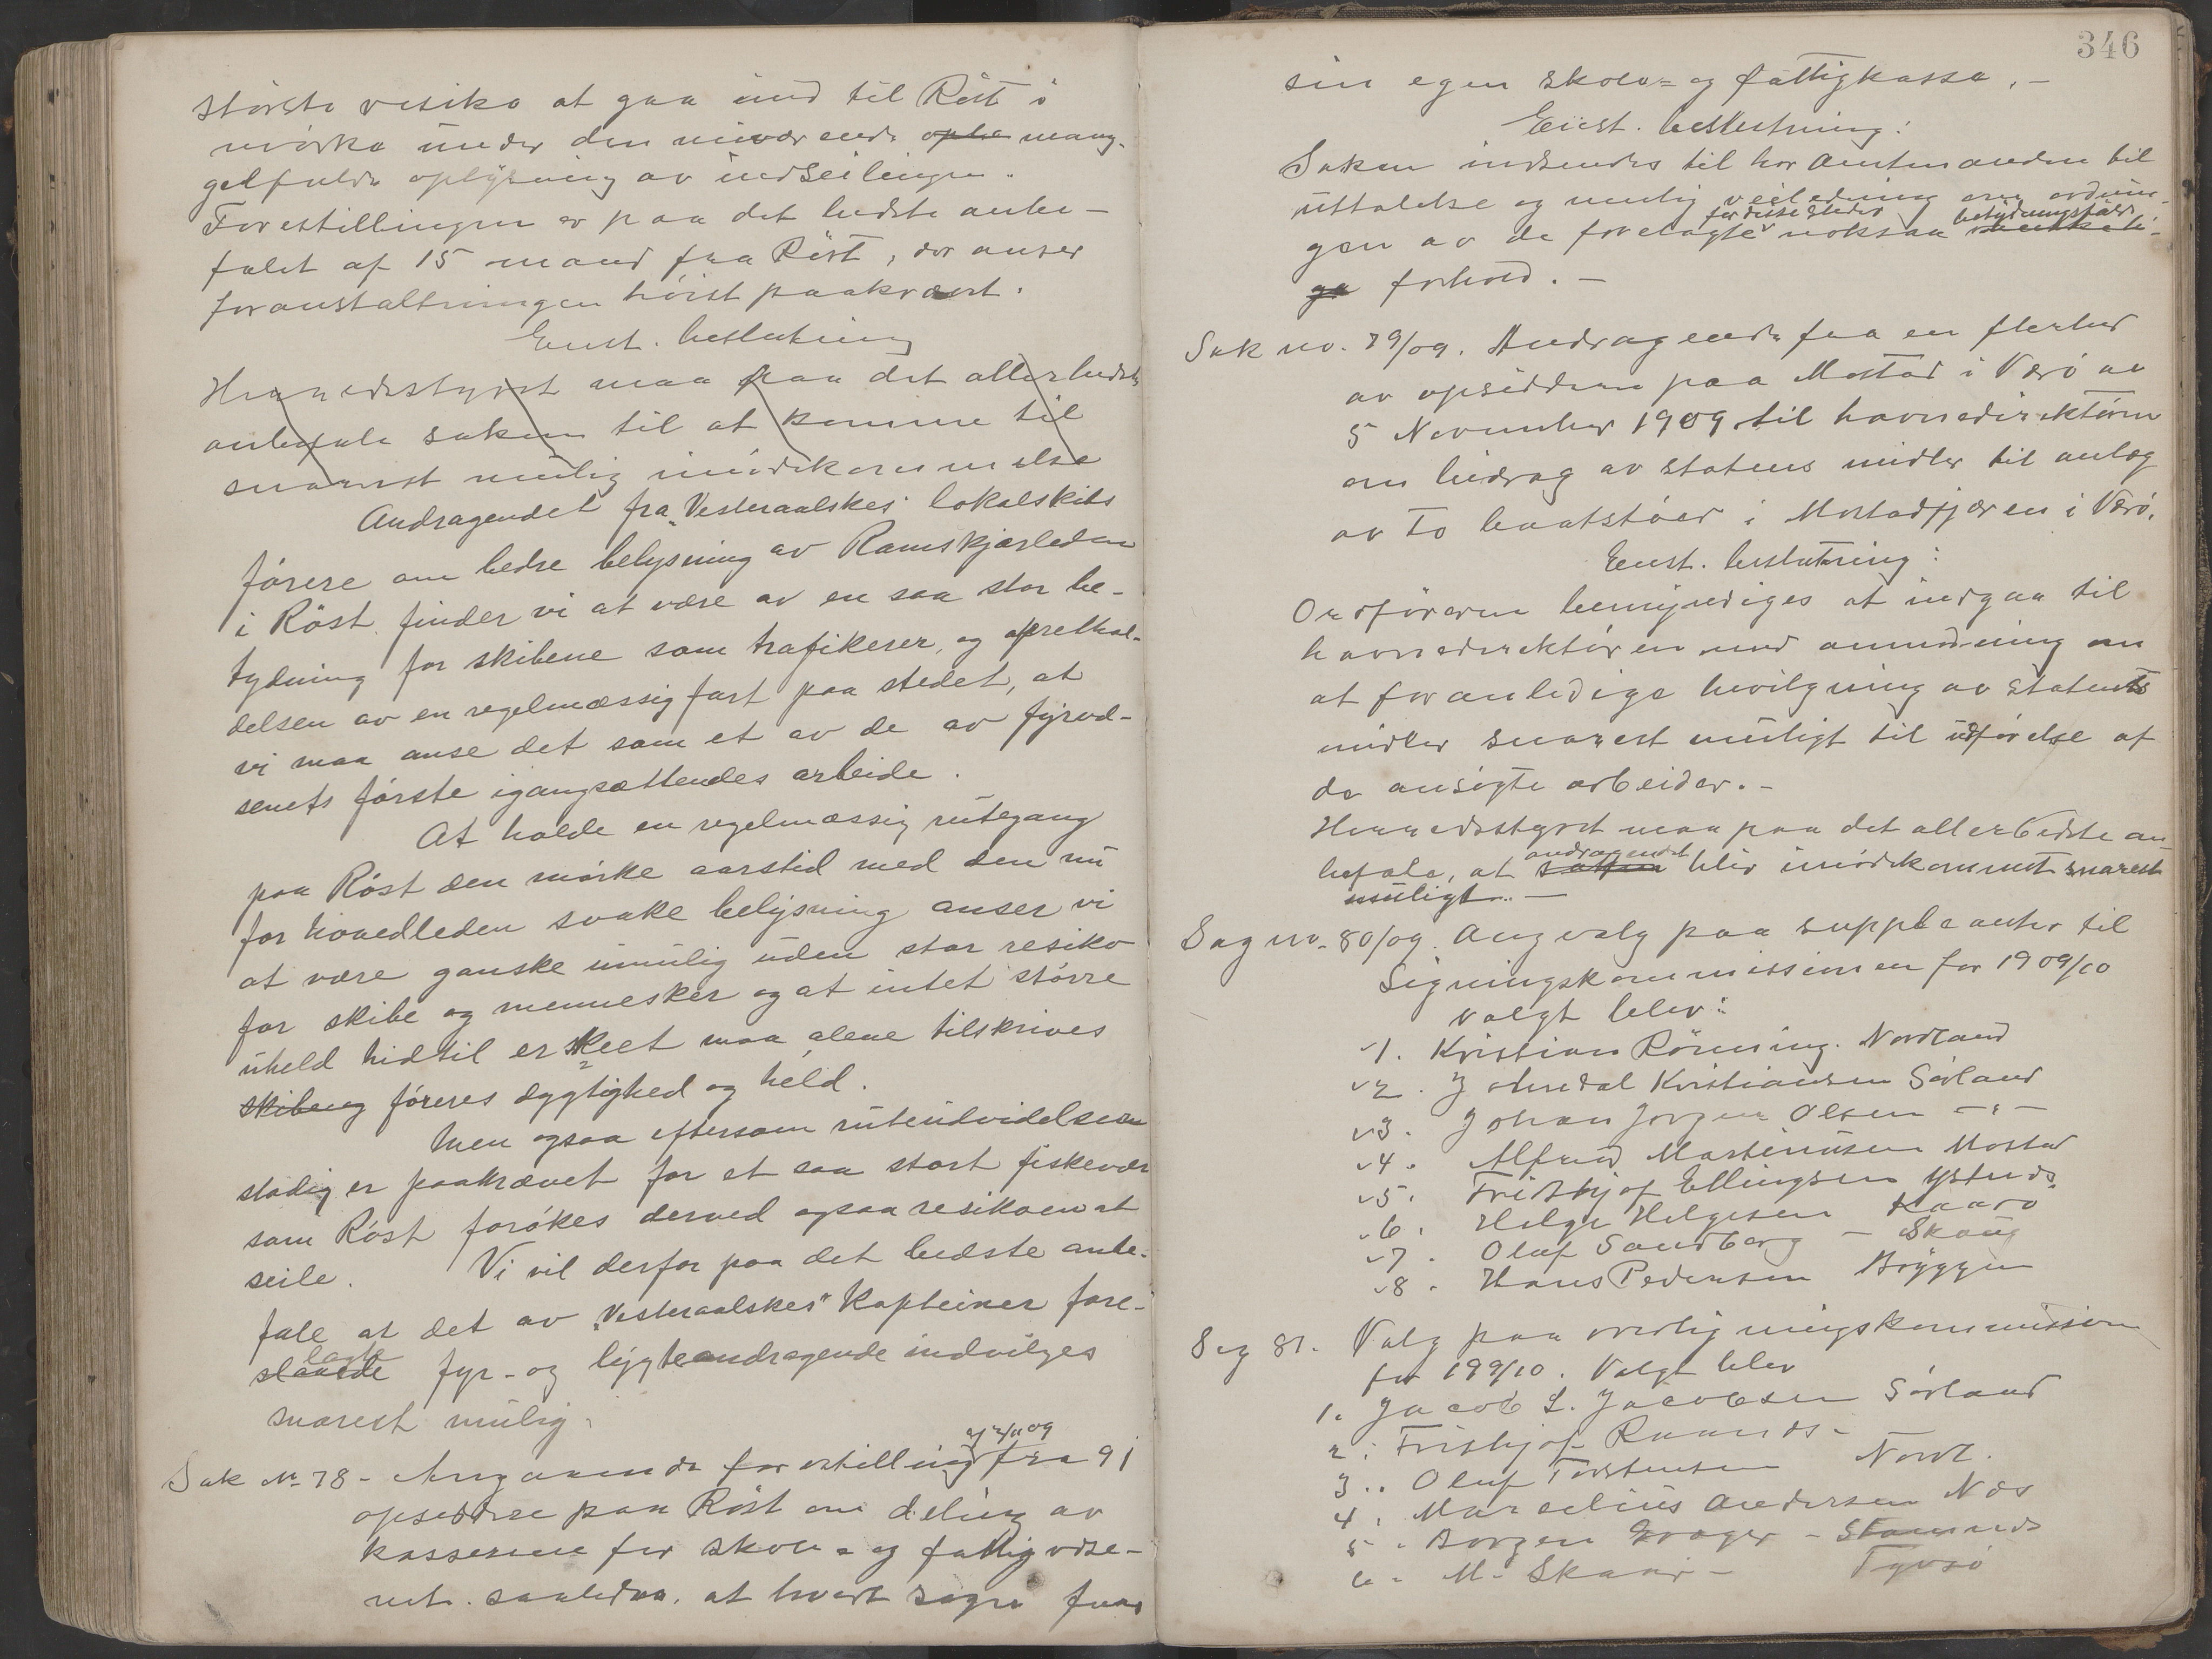 største resiko at gaa ind til Røst i
mørke under den nuværende ople mang-
gelfulde oplysning av indseilingen.
Forestillingen er paa det bedste anbe-
falet af 15 mand fra Røst, der anser
foranstaltningen høist paakrævet.
Enst. beslutning
Herredsstyret maa paa det allerbedste
anbefale saken til at komme til
snarest mulig imødekommelse
Andragendet fra "Vesteraalskes" lokalskibs
førere om bedre belysning av Ramskjærleden
i Røst finder vi at være av en saa stor be-
tydning for skibene som trafikerer, og oprethol-
delsen av en regelmæssig fart paa stedet, at
vi maa anse det som et av de av fyrvæ-
senets første igangsættendes arbeide.
At holde en regelmæssig rutegang
paa Røst den mørke aarstid med den nu
for hovedleden svake belysning anser vi
at være ganske umulig uden stor resiko
for skibe og mennesker og at intet større
uheld hidtil er skeet maa alene tilskrives
skibenes føreres dygtighed og held.
Men ogsaa eftersom ruteudvidelsen
stadig er paakrævet for et saa stort fiskevær
som Røst forøkes derved ogsaa resikoen at
seile. Vi vil derfor paa det bedste anbe-
fale at det av "Vesteraalskes" kapteiner fore-
slaaede lagte fyr- og lygteandragende indvilges
snarest mulig.
Sak No. 78 - Angaaende forestilling af 2/11 09 fra 91
opsiddere paa Røst om deling av
kasserne for skole- og fattigvæse-
net. saaledes, at hvert sogn faar
346
sin egen skole- og fattigkasse. -
Enst. beslutning:
Saken indsendes til hr Amtmanden til
uttalelse og mulig veiledning om ordnin-
gen av de forelagte for disse steder noksaa betydningsfulde
ge forhold. -
Sak no. 79/09. Andragende fra en flerhed
av opsiddere paa Mostad i Værø av
5 November 1909 til havnedirektøren
om bidrag av statens midler til anlæg
av to baatstøer i Mostadfjæren i Værø.
Enst. beslutning:
Ordføreren bemyndiges at indgaa til
havnedirektøren med anmodning om
at foranledige bevilgning av statens
midler snarest muligt til udførelse af
de ansøgte arbeider. -
Herredsstyret maa paa det allerbedste an-
befale, at saken andragendet blir imødekommet snarest
muligt. -
Sag no. 80/09. Ang valg paa suppleanter til
Ligningskommissionen for 1909/10
valgt blev:
1. Kristian Rønning. Nordland
2. J Kristiansen Sørland
3. Johan Jørgen Olsen -"-
4. Alfred Martinusen Mostad
5. Fridthjof Ellingsen Ystnes.
6. Helge Helgesen Kaarø
7. Oluf Sandberg - Skaug
8. Hans Pedersen Bryggen
Sag 81. Valg paa overligningskommission
for 1909/10. Valgt blev
1. Jacob L. Jacobsen Sørland
2. Frithjof Raanes -
3. Oluf Torstensen Nordl.
4. Marselius Andersen Næs
5. Jørgen Greger - Stamnes
6. M. Skaar - Tyvsø